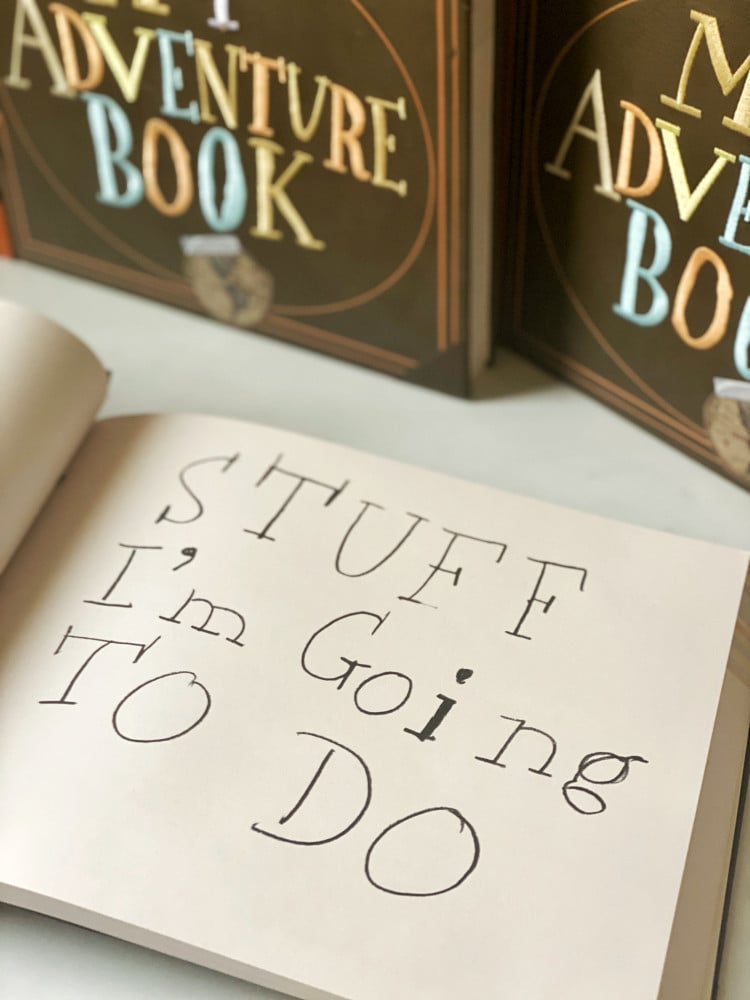 ADVENTURE
BOOK
ADV
BO
STUFF
I'm Going
TO DO